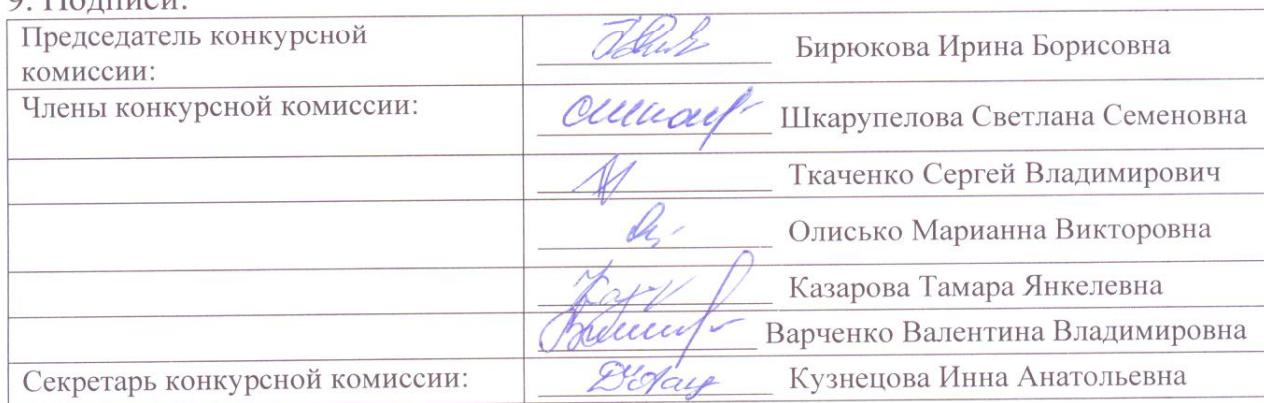 9. Подписи:
Председатель конкурсной
комиссии:
Бирюкова Ирина Борисовна
Члены конкурсной комиссии:
Шкарупелова Светлана Семеновна
Ткаченко Сергей Владимирович
Олисько Марианна Викторовна
Казарова Тамара Янкелевна
Варченко Валентина Владимировна
Секретарь конкурсной комиссии:
Кузнецова Инна Анатольевна